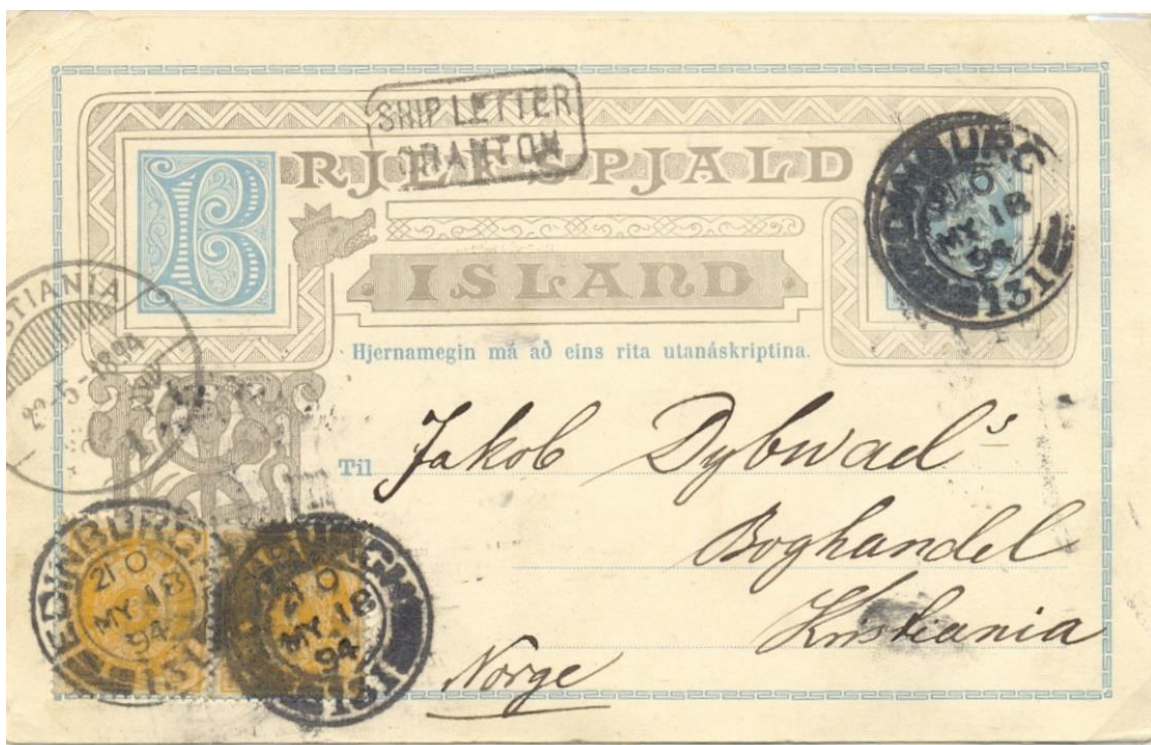 SHIP LETTER
GRANTON
BRJEFSPJALD
ISLAND
EDINBURGH
21 O
MY 18
94
131
Hjernamegin má að eins rita utanáskriptina.
STIANIA
-5-1894
1
Til Jakob Dybwad's
Boghandel
Kristiania
Norge
EDINBURGH
21 O
MY 18
94
131
EDINBURGH
21 O
MY 18
94
131